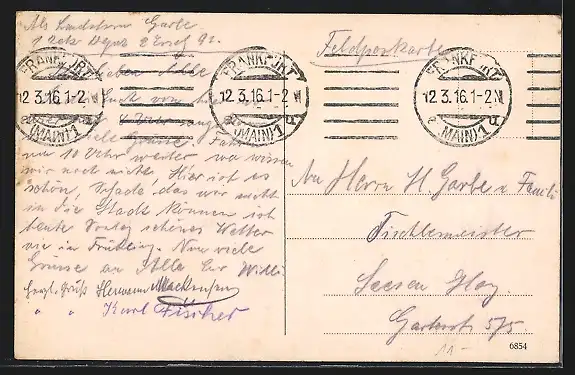 Abs. Landsturm Garbe
Feldpostkarte
FRANKFURT
12.3.16.1-2 N
(MAIN) 1
FRANKFURT
12.3.16.1-2 N
(MAIN) 1
FRANKFURT
12.3.16.1-2 N
(MAIN) 1
Alle
von hier
viele Grüsse. Fahren
um 10 Uhr weiter, wo wissen
wir noch nicht, Hier ist es
schön, Schade das wir nicht
in die Stadt können ist
heute Sontag schönes Wetter
wie im Frühling. Nun viele
Grüsse an Alle Eur Willi
Hermann Mackensen
" " Karl Fischer
An Herrn H. Garbe u. Famili
Tischlermeister
Seesen Harz
575
11.-
6854